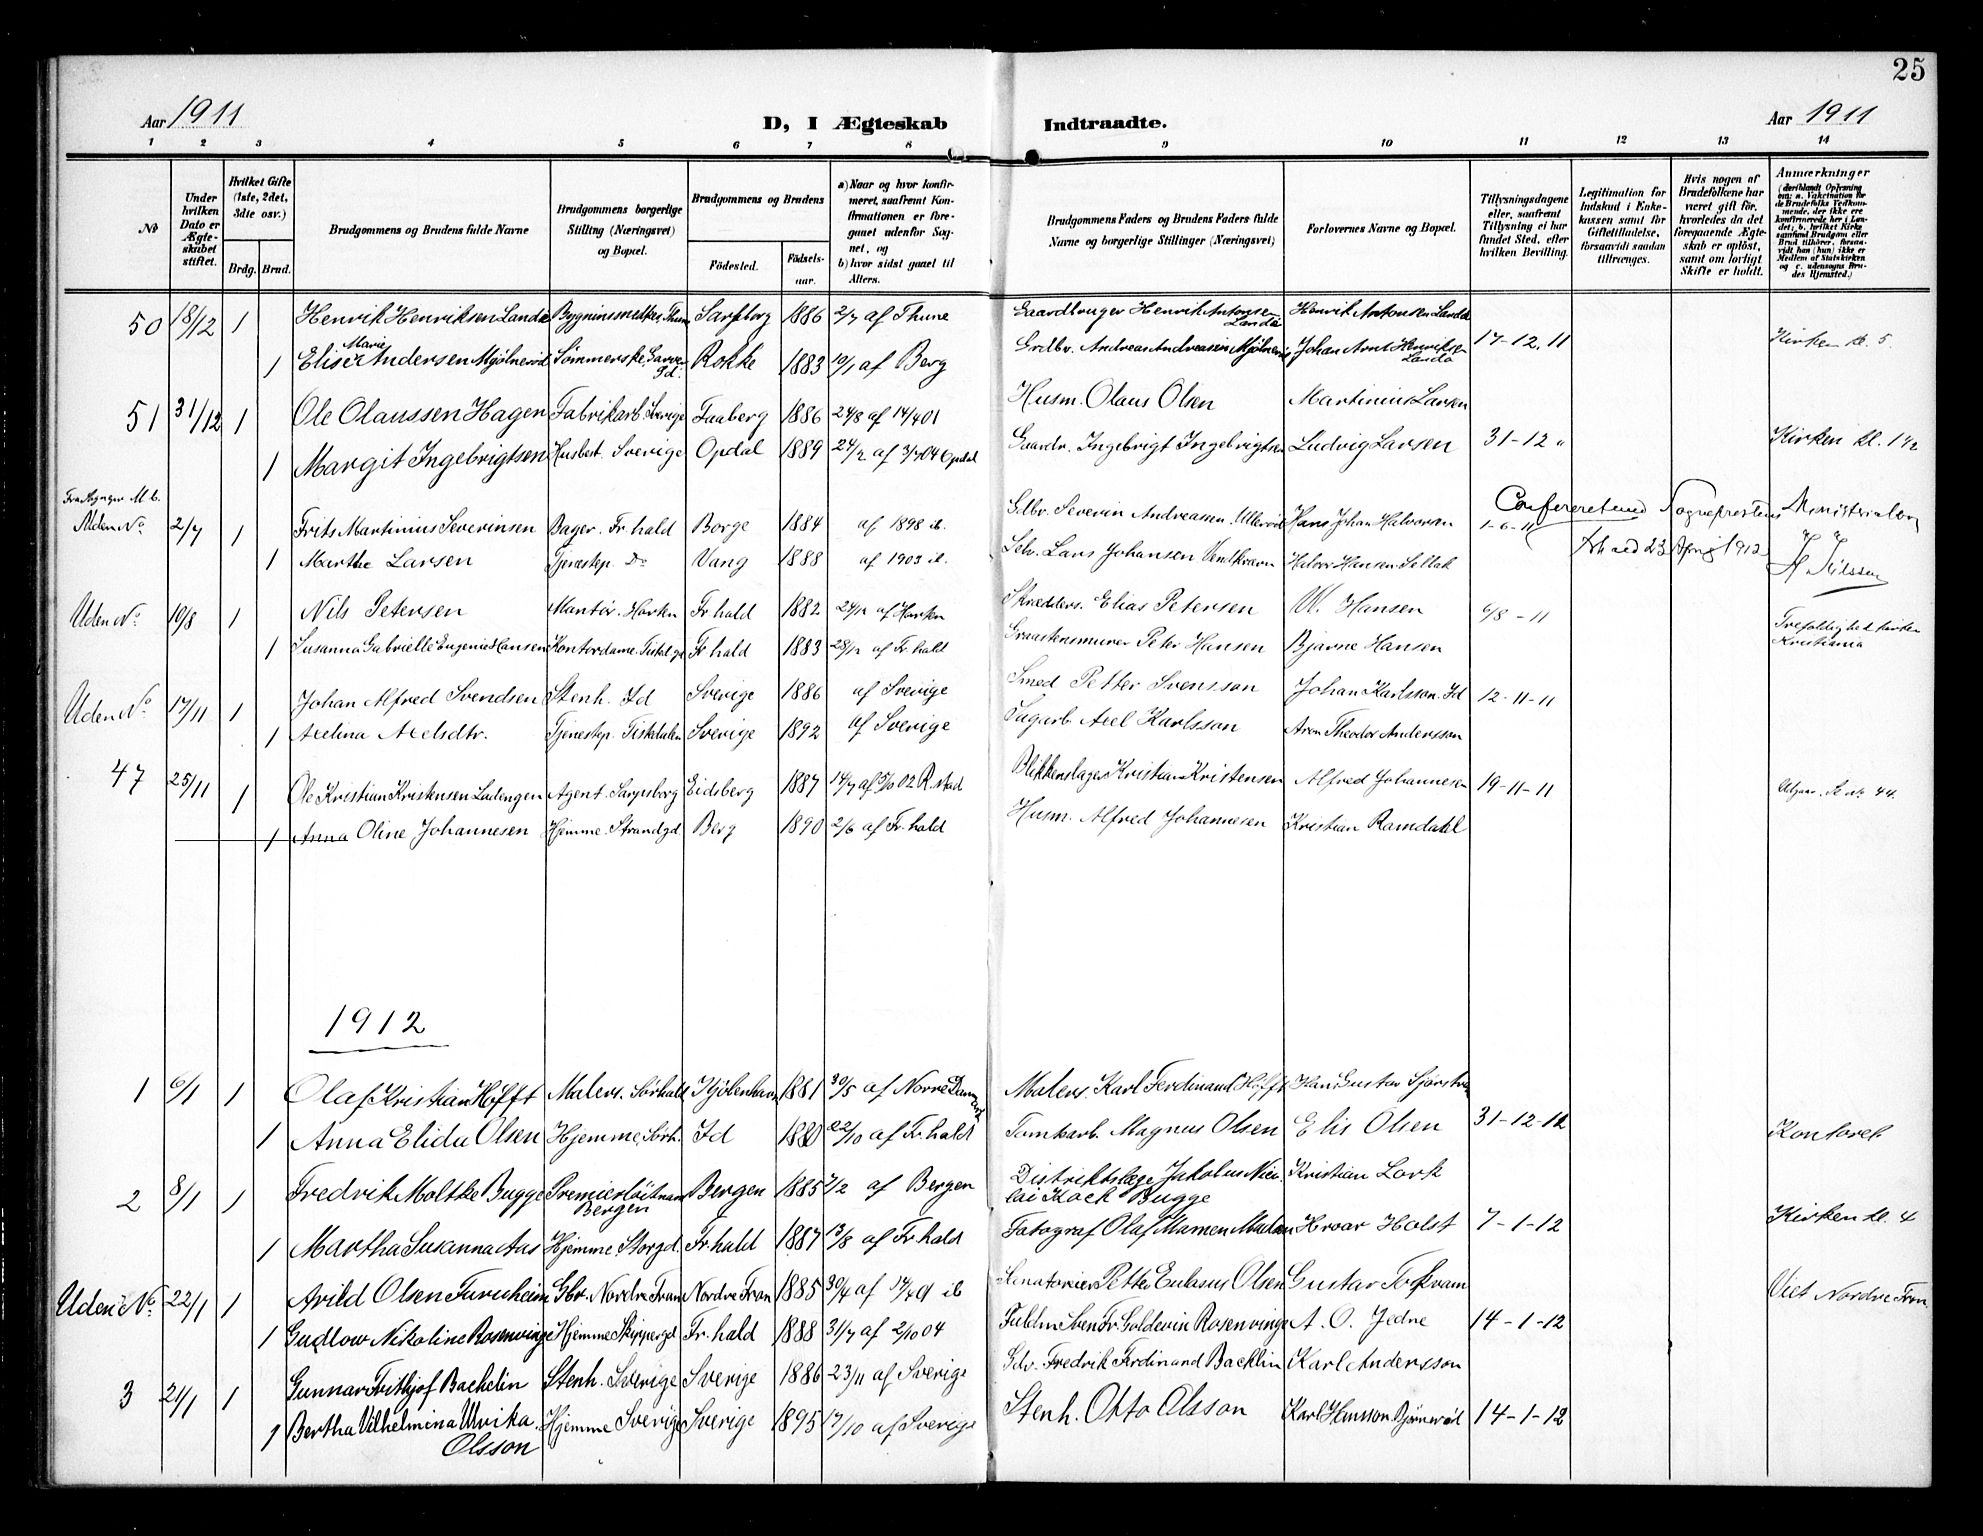 25
Aar 1911
D, I Ægteskab Indtraadte.
Aar 1911
1 2 3 4 5 6 7 8 9 10 11 12 13 14
No
Under hvilken Dato er Ægteskabet stiftet.
Hvilket Gifte (1ste, 2det, 3die osv.)
Brdg. Brud.
Brudgommens og Brudens fulde Navne
Brudgommens borgerlige Stilling (Næringsvei) og Bopæl.
Brudgommens og Brudens
Födested. Födselsaar.
a) Naar og hvor konfirmeret, saafremt Konfirmationen er foregaaet udenfor Sognet, og
b) hvor sidst gaaet til Alters.
Brudgommens Faders og Brudens Faders fulde Navne og borgerlige Stillinger (Næringsvei)
Forlovernes Navne og Bopæl.
Tillysningsdagene eller, saafremt Tillysning ei har fundet Sted, efter hvilken Bevilling.
Legitimation for Indskud i Enkekassen samt for Giftetilladelse, forsaavidt saadan tiltrænges.
Hvis nogen af Brudefolkene har været gift för, hvorledes da det foregaaende Ægteskab er oplöst, samt om lovligt Skifte er holdt.
Anmærkninger
50 18/12 1 Henrik Henriksen Landa Sarpborg 1886 2/7 af Thune Gaardbruger Henrik Antonsen Landa Henrik Antonsen Landa 17-12.11 Kirken kl. 5.
1 Elise Marie Andersen Mjölneröd Rokke 1883 10/1 af Berg Grdbr. Andreas Andreasen Johan Arnt Henriksen Landa
51 31/12 1 Ole Olaussen Hagen Fabrikarb. Sverige Faaberg 1886 24/8 af 14/401 Husm. Olaus Olsen Martinius Larsen
1 Margit Ingebrigtsen Husbest. Sverige Opdal 1889 24/2 af 3/704 Opdal Gaardr. Ingebrigt Ingebrigtsen Ludvig Larsen 31-12 " Kirken kl. 1 1/2
Uden No. 2/7 1 Frits Martinius Severinsen Bager. Fr.hald Borge 1884 af 1898 ib. Severin Andreassen Ulleröd Hans Johan Halvorsen 1-6-11
Confereret med Sogneprestens Ministerialbog
1 Marthe Larsen Tjenestep. Do Vang 1888 af 1903 ib. Selv. Lars Johansen Halvor Hansen 23 April 1912 H. Nilssen
Uden No. 19/8 1 Nils Petersen Montör. Fr.hald 1882 24/12 af Elias Petersen M. Hansen 6/8-11 Trefoldighedskirken Kristiania
1 Susanna Gabrielle Eugenie Hansen Kontordame Fr.hald 1883 28/12 af Fr.hald Peter Hansen Bjarne Hansen
Uden No. 17/11 1 Johan Alfred Svendsen Stenh. Id Sverige 1886 af Sverige Smed Petter Svensson Johan Karlsson. Id 12-11-11
1 Axelina Axelsdtr. Tjenestep. Tistdalen Sverige 1892 af Sverige Sagarb. Axel Karlsson Aron Theodor Andersson
47 25/11 1 Ole Kristian Kristensen Ladengen Agent. Sarpsborg Eidsberg 1887 14/7 af 5/10 02 R.stad Blikkenslager Kristian Kristensen Alfred Johannesen 19-11-11
1 Anna Oline Johannesen Hjemme. Strandgd Berg 1890 2/6 af Fr.hald Husm. Alfred Johannesen Kristian Ramdahl
1912
1 6/1 1 Olaf Kristian Höfft Malers. Sörhald Kjöbenhavn 1881 30/5 af Norre Danmark Malers. Karl Ferdinand Höfft Hans Gustav 31-12-12 Kontoret
1 Anna Elida Olsen Hjemme, Sörh. Id 1880 22/10 af Fr.hald Tomtarb. Magnus Olsen Elis Olsen
2 8/1 1 Fredrik Moltke Bugge Premierlöitnant Bergen Bergen 1885 7/2 af Bergen Distriktslæge Jakobus Nicolai Kock Bugge Kristian Lork
1 Martha Susanna Aas Hjemme. Storgd. Fr.hald 1887 13/8 af Fr.hald Fotograf Olaf Mamen Hroar Holst 7-1-12 Kirken kl. 4
Uden No. 22/1 1 Arild Olsen Furuheim Gbr. Nordre Fron Nordre Fron 1885 30/4 af 14/4 01 ib Petter Eulasius Olsen Gustav Viet Nordre Fron
1 Gudlow Nikoline Rosenvinge Hjemme Skippergd Fr.hald 1888 31/7 af 2/10 04 Goldevin Rosenvinge A. O. Jedne 14-1-12
3 21/1 1 Gunnar Frithjof Backelin Stenh. Sverige Sverige 1886 23/11 af Sverige Fredrik Ferdinand Backlin Karl Andersson
1 Bertha Vilhelmina Ulrika Olsson Hjemme Sverige Sverige 1895 17/10 af Sverige Stenh. Otto Olsson Karl Hansson Björneröd 14-1-12